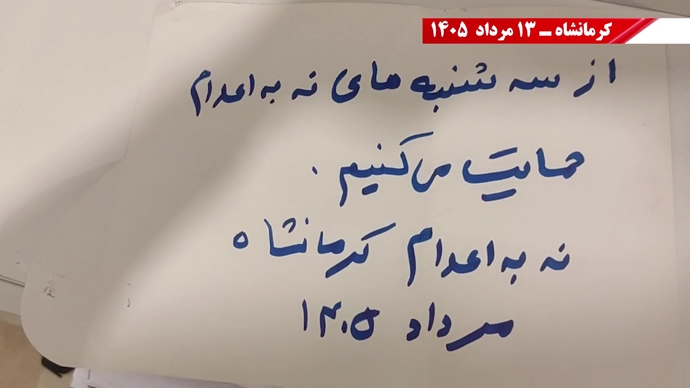 کرمانشاه ــ ۱۳ مرداد ۱۴۰۵
از سه شنبه های نه به اعدام
حمایت می کنیم .
نه به اعدام کرمانشاه
مرداد ۱۴۰۵